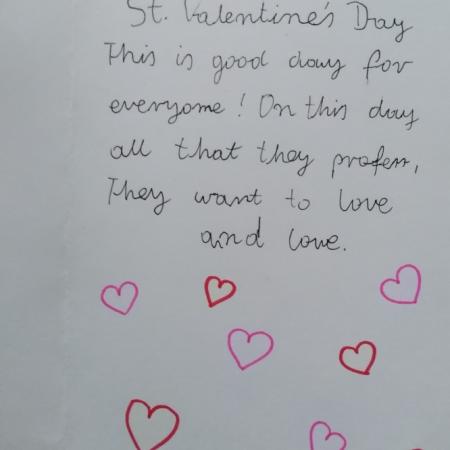 St. Valentine's Day
This is good day for
everyome! On this day
all that they profem,
They want to love
and love.